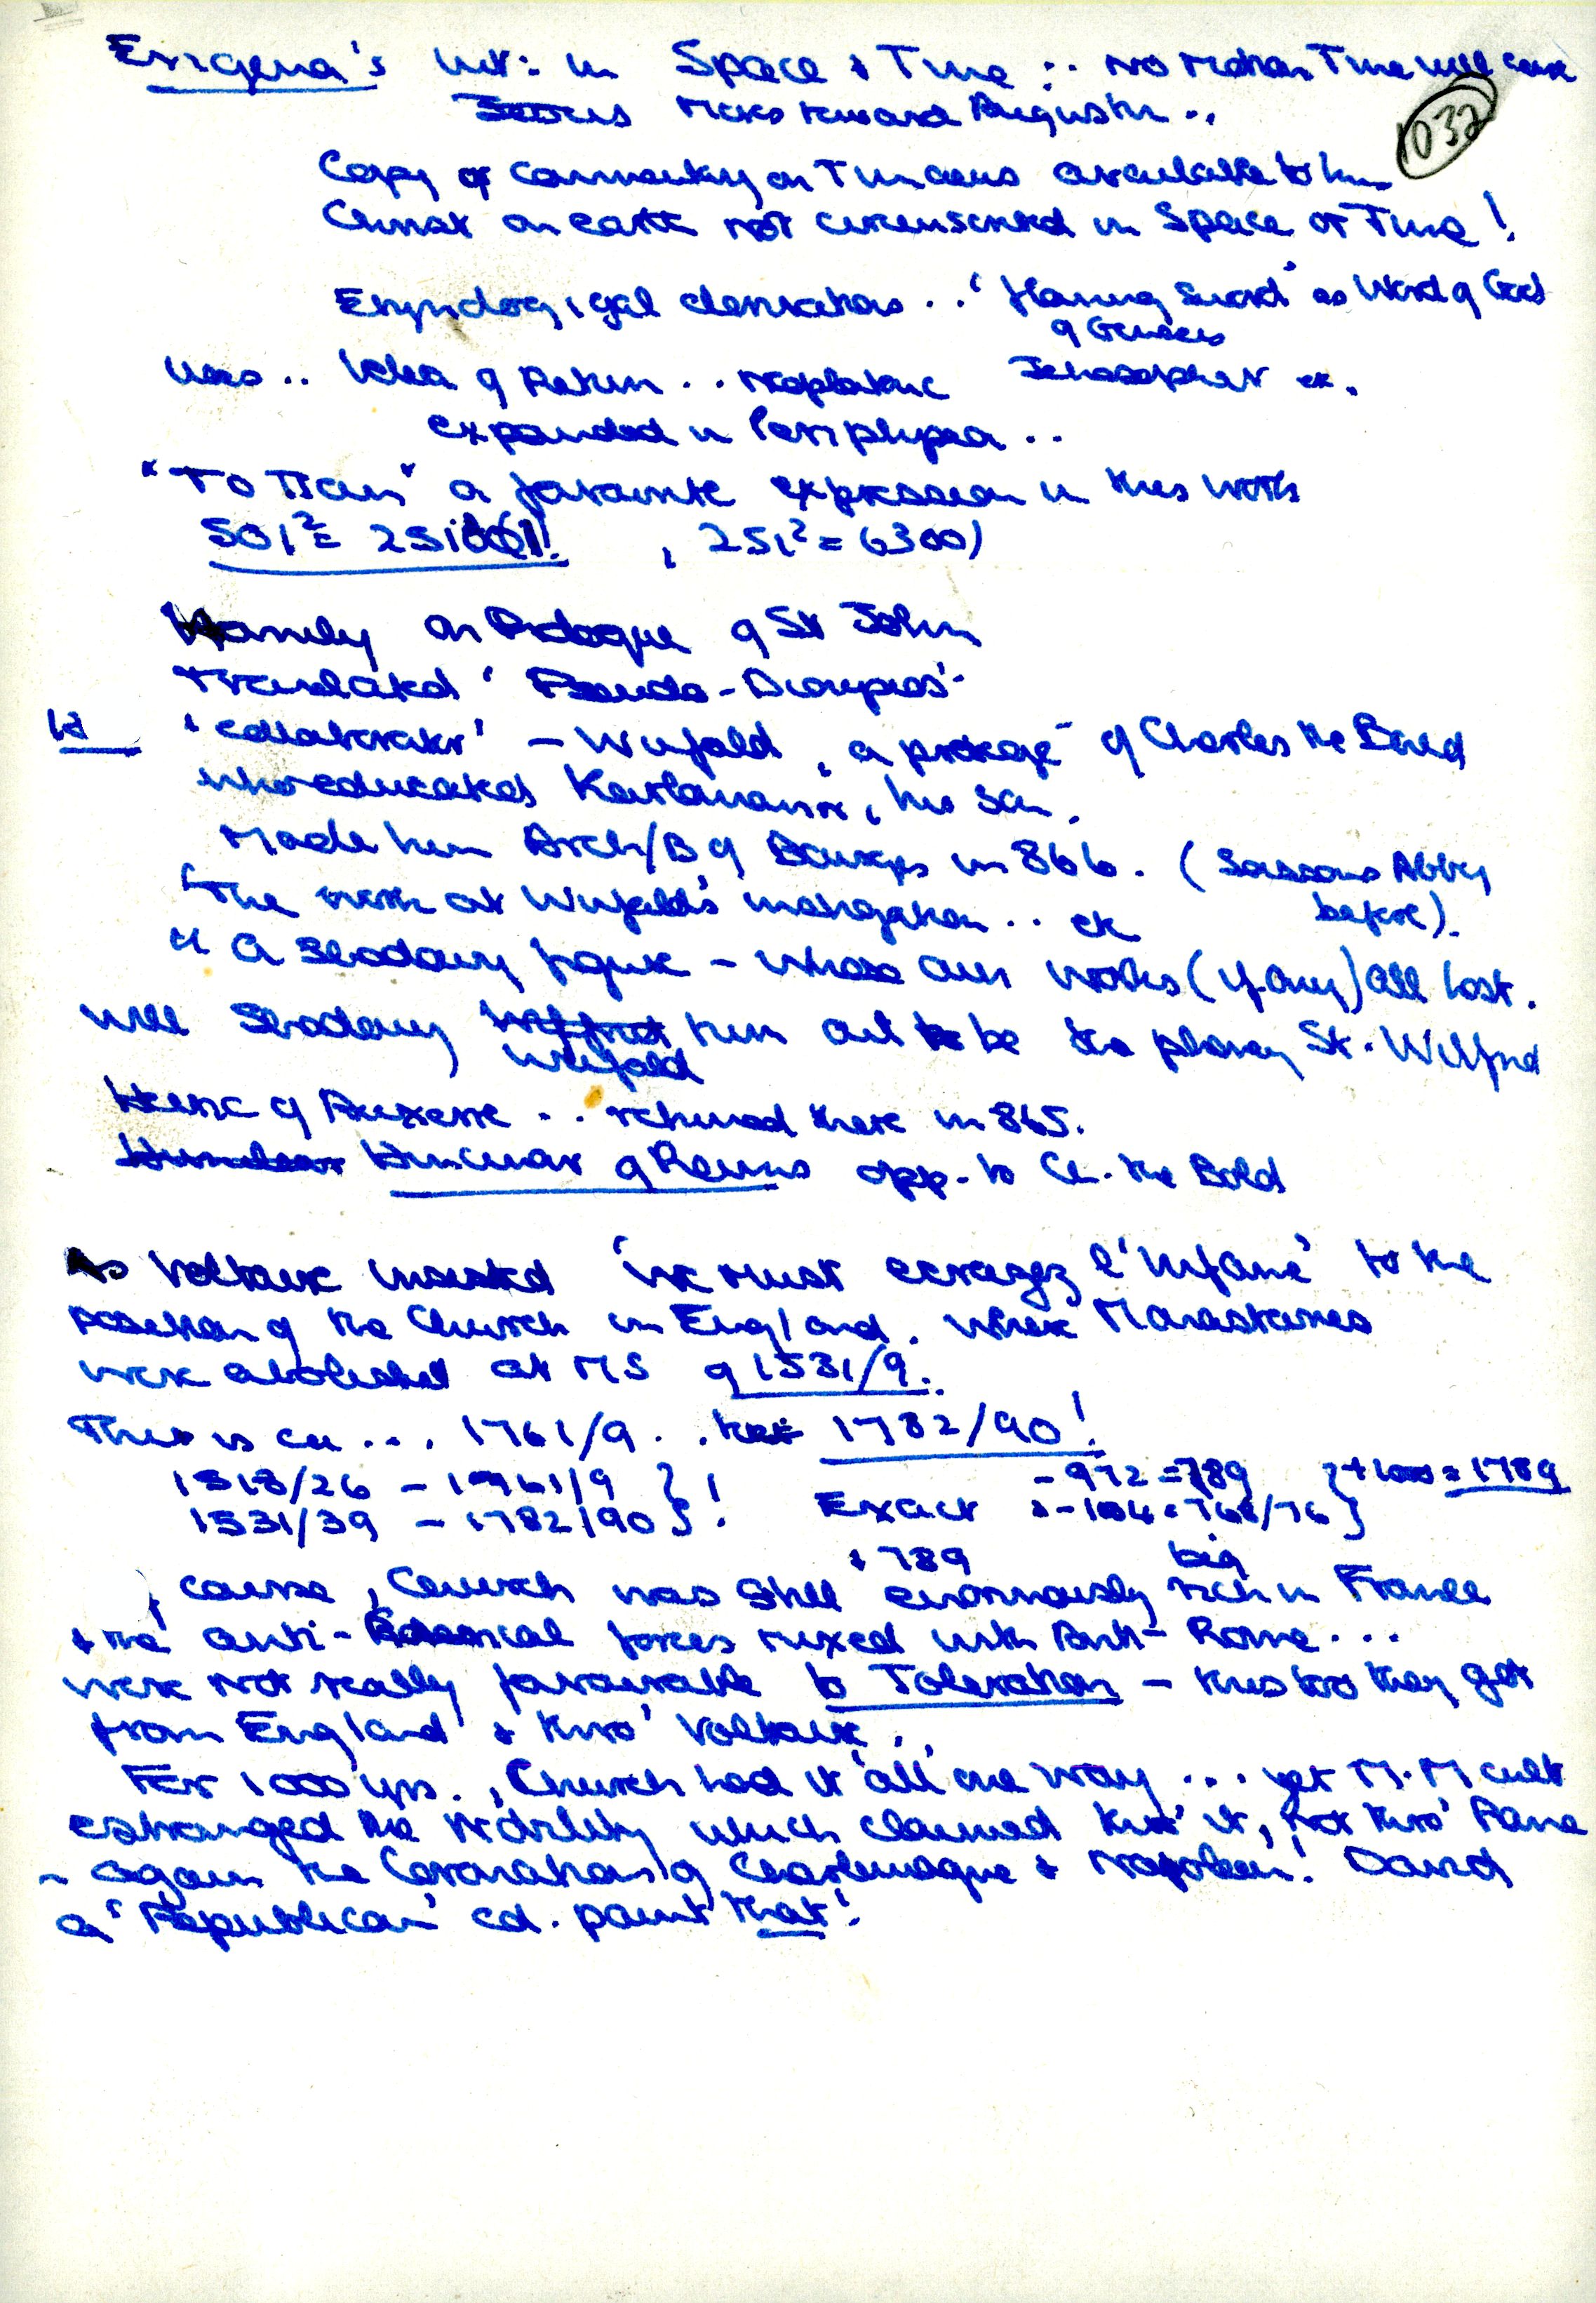 Erigena's int: in Space & Time : . No Motion Time will cease
1032
Looks toward Augustin ..
Copy of commentary on Timaeus available to him
Christ on earth not circumscribed in Space or Time!
Etymological derivations .. 'flaming sword' as Word of God
of Genesis
uses .. Idea of Return .. neoplatonic Jehosophat etc.
expanded in Periphysea ..
"To Pan" a favourite expression in this work
501² = 251001!! , 251² = 6300)
Homily on Prologue of St John
translated 'Pseudo-Dionysios'
'collaborator' - Wufald, a protegé of Charles the Bald
who educated Karlomann, his son.
Made him Arch/B of Bourges in 866. (Soissons Abbey
before).
'The work at Wufald's instigation .. etc
"A shadowy figure - whose own works (if any) all lost.
Will shadowy Wilfrid turn out to be the phoney St. Wilfrid
Wufald
Heiric of Auxerre .. returned there in 865.
Hincmar of Reims opp. to Ch. the Bald
As Voltaire insisted 'we must ecrasez l'Infame' to the
position of the Church in England. where Monasteries
were abolished at MS of 1531/9.
This is ca ... 1761/9 . . 1782/90!
1518/26 - 1761/9 } ! - 972 = 789 } + 1000 = 1789
1531/39 - 1782/90 } ! Exact - 1004 = 768/76 }
+ 789 big
, course, Church was still enormously rich in France
& the anti- forces mixed with Anti-Rome ...
were not really favourable to Toleration - this too they got
from England & thro' Voltaire ..
For 1000 yrs., Church had it 'all' one way ... yet M.M cult
estranged the Nobility which claimed thro' it, not thro' Rome
- again the Coronations of Charlemagne & Napoleon! David
a 'Republican' cd. paint that!